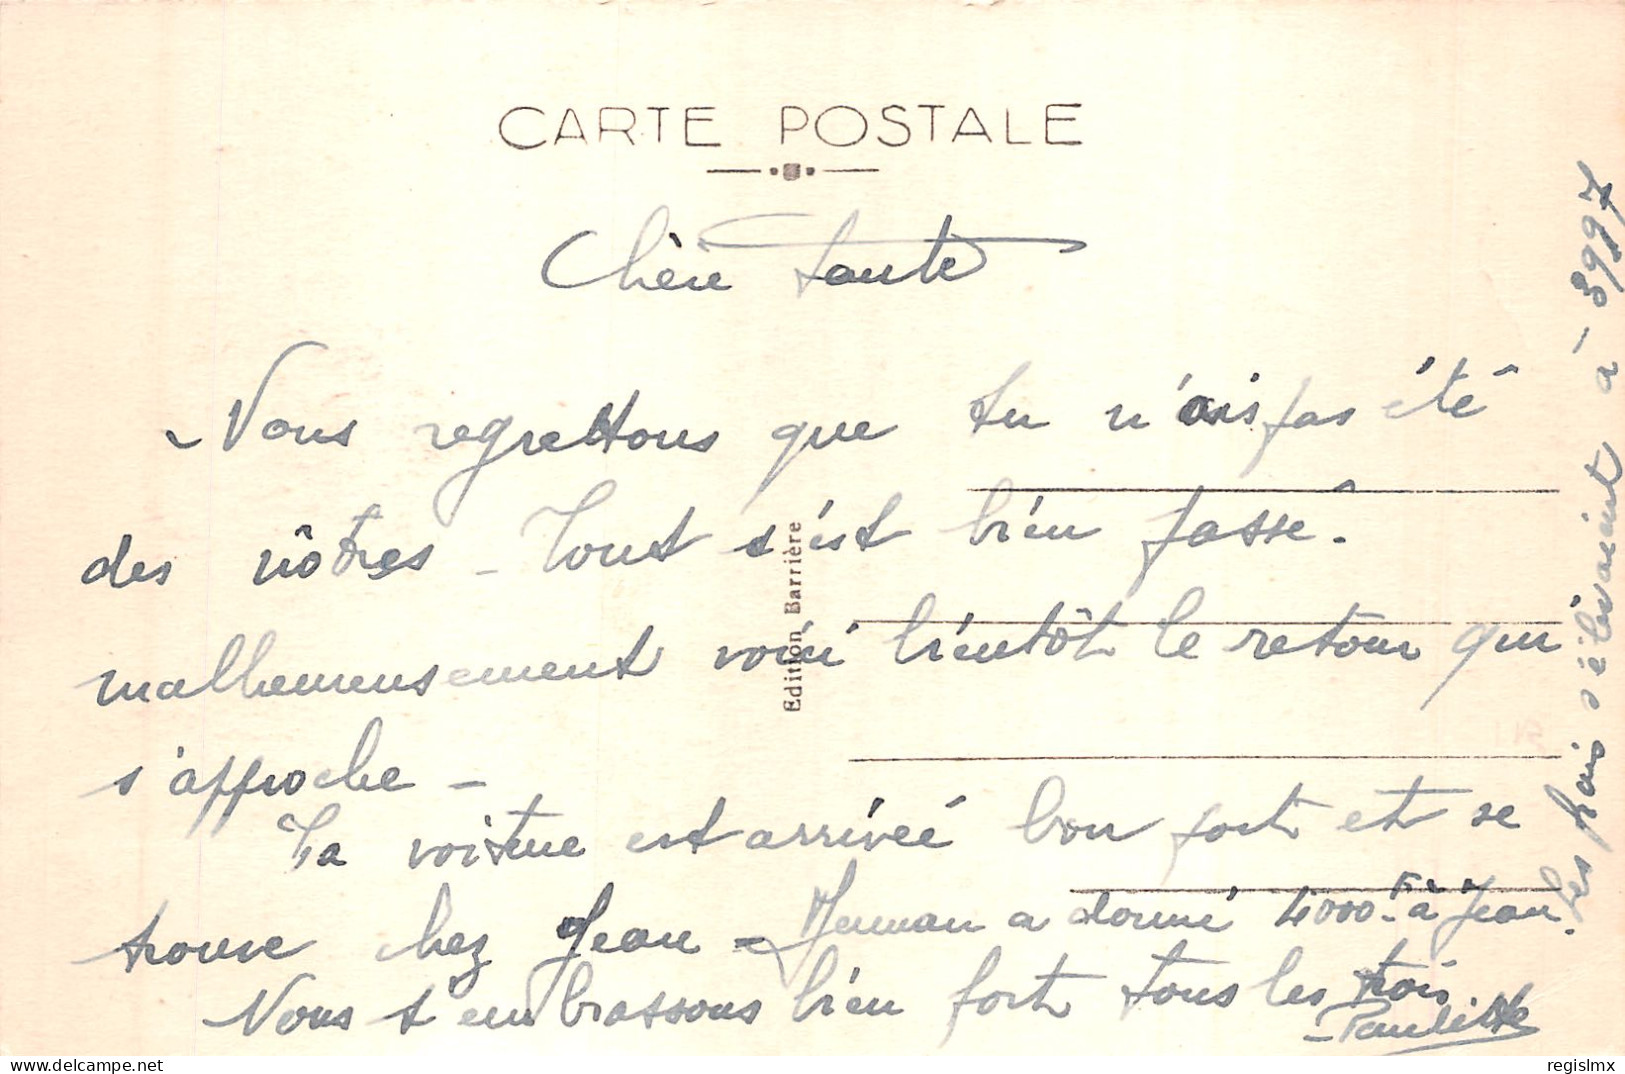 CARTE POSTALE
Chère tante
Nous regrettons que tu n'ais pas été
des nôtres - Tout s'est bien passé.
malheureusement voici bientôt le retour qui
s'approche -
Ta voiture est arrivée à bon port et se
trouve chez Jean - Maman a donné 4000F à Jean.
Les frais s'élevaient à 3997
Nous t'embrassons bien fort tous les trois
Paulette
Edition Barrière
regislmx